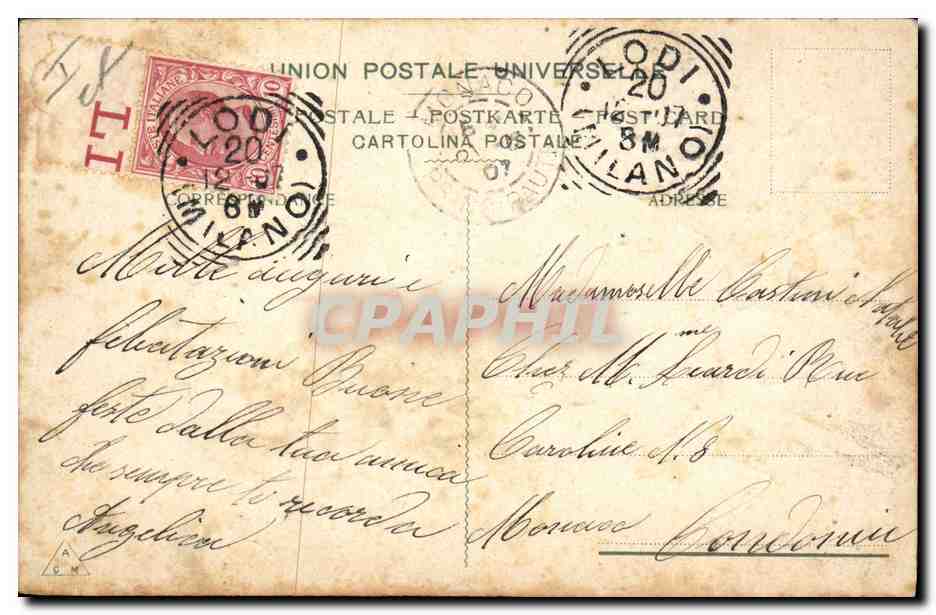 UNION POSTALE UNIVERSELLE
POSTALE – POSTKARTE – POST CARD
CARTOLINA POSTALE
CORRESPONDANCE
ADRESSE
LODI
20
12
8 M
(MILANO)
MONACO
07
LODI
20
12
8 M
(MILANO)
IT
10
Mille auguri e
felicitazioni Buone
feste dalla tua amica
che sempre ti ricorda
Angelica
Madamoselle Casturi Natalie
Chez Mme Leardi Rue
Caroline N. 8
Monaco Condamine
CPAPHIL
A
G M